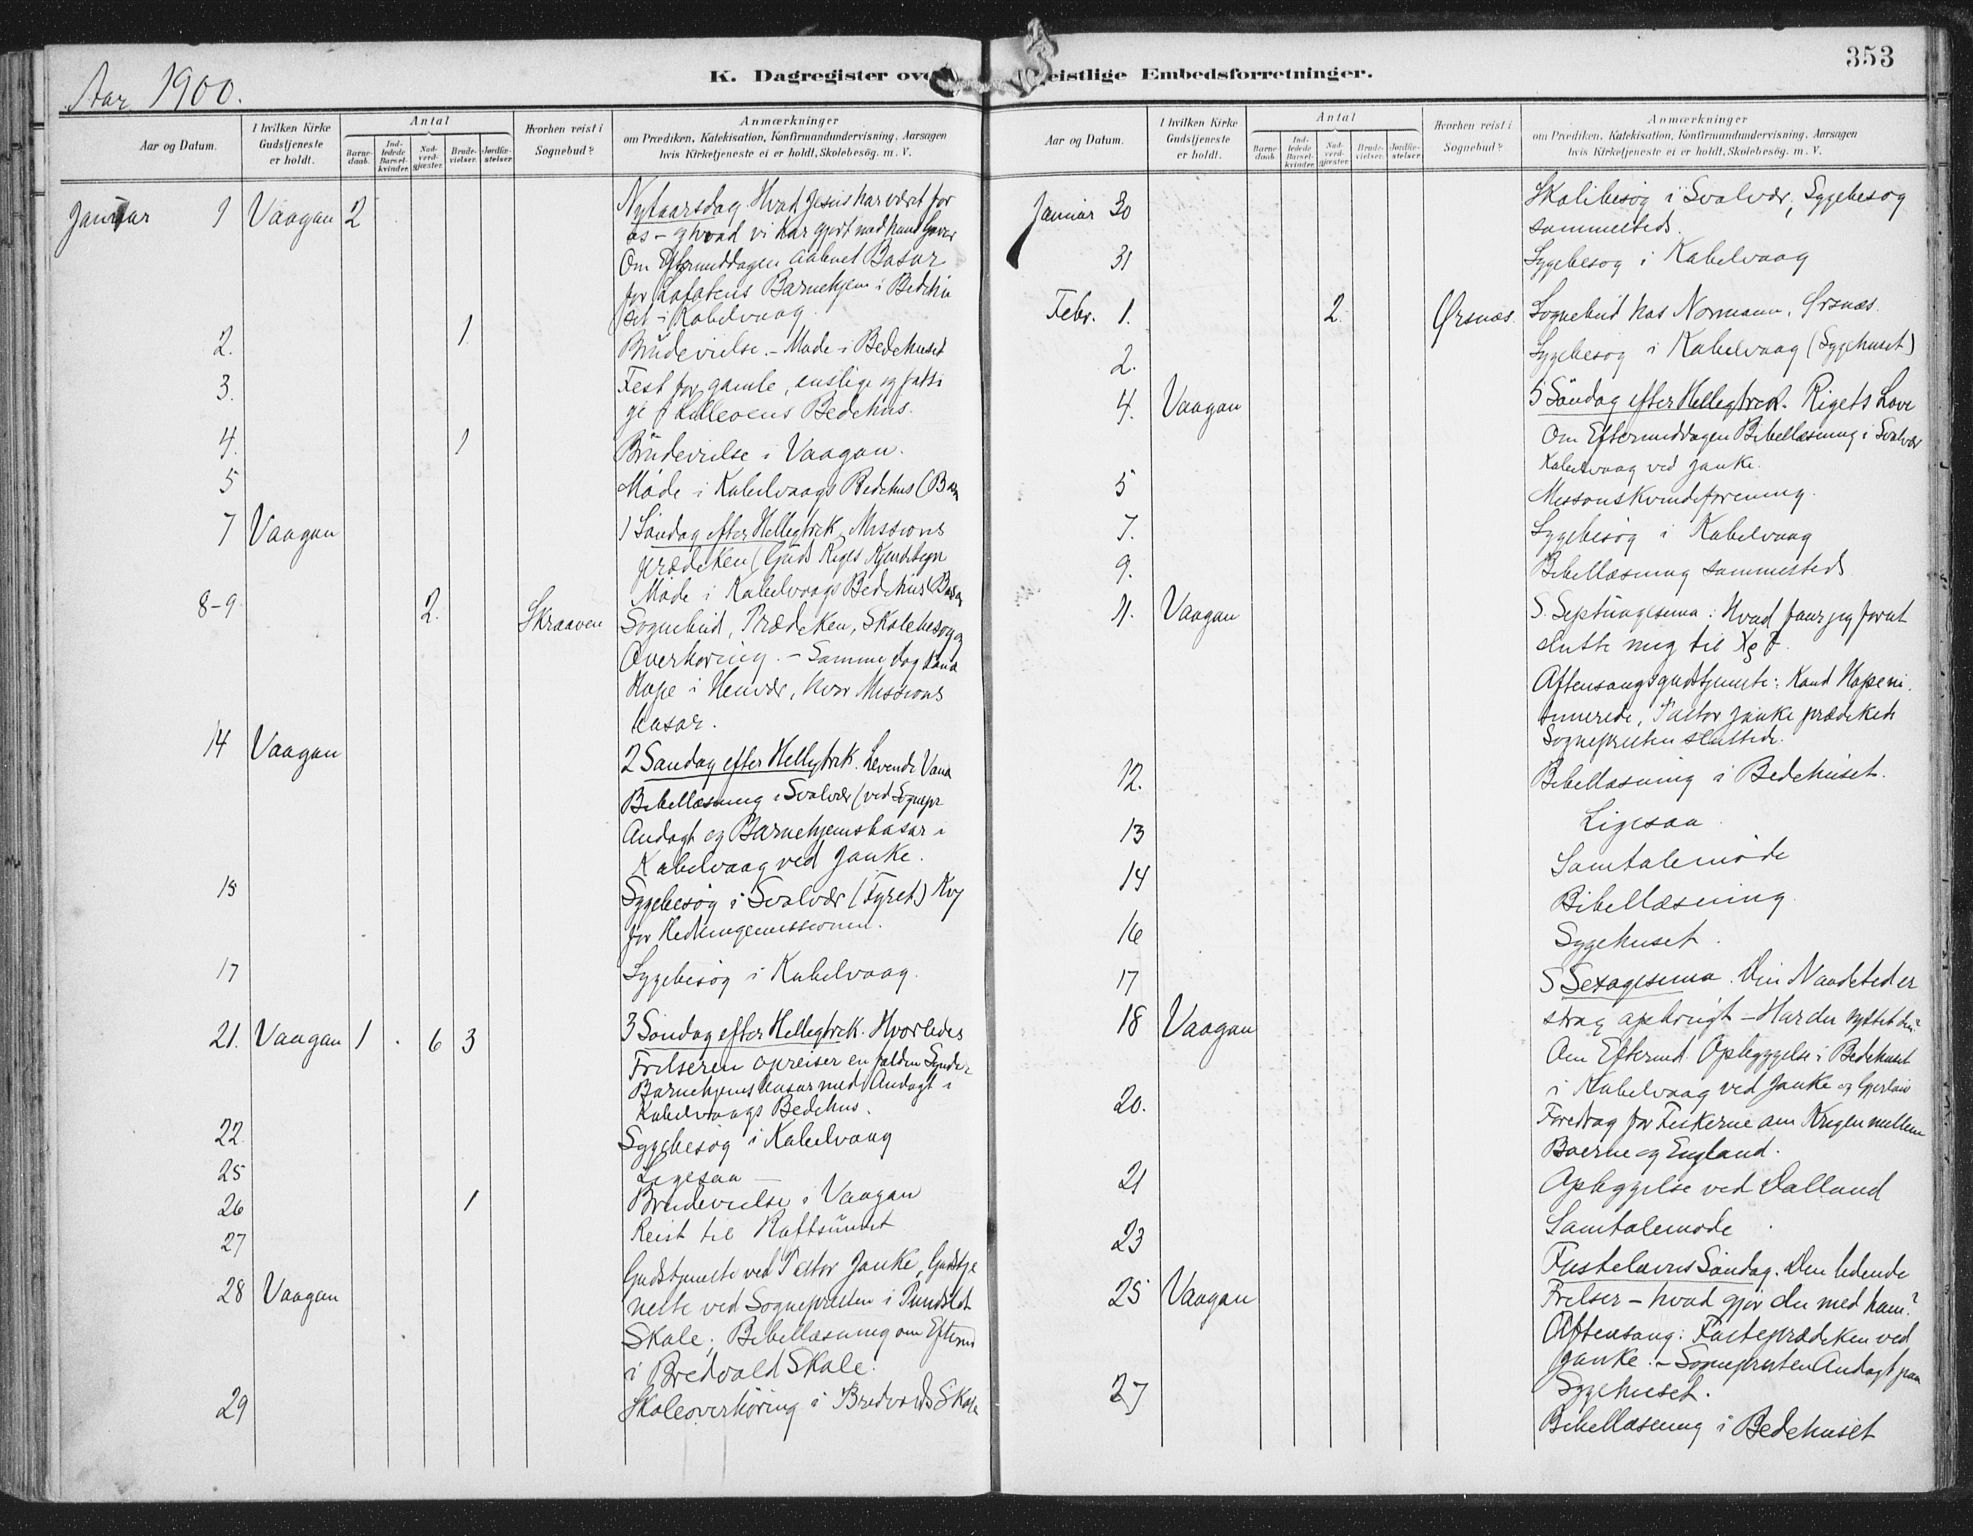 353
Aar 1900.
K. Dagregister over geistlige Embedsforretninger.
Aar og Datum.
I hvilken Kirke Gudstjeneste er holdt.
Antal
Barnedaab.
Indledede Barselkvinder.
Nadverdgjæster.
Brudevielser.
Jordfæstelser.
Hvorhen reist i Sognebud?
Anmærkninger
om Prædiken, Katekisation, Konfirmandundervisning, Aarsagen
hvis Kirketjeneste ei er holdt, Skolebesög. m. V.
Januar 1 Vaagan 2 Nytaarsdag. Hvad Jesus har været for
os - og hvad vi har gjort med hans Gaver
Om Eftermiddagen aabnet Basar
for Lofotens Barnehjem i Bedehu
set i Kabelvaag.
2. 1 Brudevielse. - Møde i Bedehuset
3. Fest for gamle, enslige og fatti
ge i Bedehus.
4. 1 Brudevielse i Vaagan.
5 Møde i Kabelvaags Bedehus (Basar
7 Vaagan 1 Søndag efter Hellegtrek. Missions
prædeken (Guds Riges Kjendetegn
Møde i Kabelvaags Bedehus (Basar
8-9 2. Skraaven Sognebud, Prædeken, Skolebesøg og
Overhøring. - Samme Dag Kand
Hope i Henvær, hvor Missions
basar.
14 Vaagan 2 Søndag efter Hellegtrek. Levende Vand
Bibellæsning i Svolvær (ved Sognepr
Andagt og Barnehjemsbasar i
Kabelvaag ved Janke.
15 Sygebesøg i Svolvær (Fyret)
for Hedningemissionen.
17 Sygebesøg i Kabelvaag.
21. Vaagan 1 . 6 3 3 Søndag efter Hellegtrek. Hvorledes
Frelseren opreiser en falden Synder
Barnehjemsbasar med Andagt i
Kabelvaags Bedehus.
22 Sygebesøg i Kabelvaag
25 Ligesaa
26 1 Brudevielse i Vaagan
27 Reist til Raftsundet
28 Vaagan Gudstjeneste ved Pastor Janke, Gudstje
neste ved Sognepresten i Pundslet
Skole; Bibellæsning om Efterm
i Bredvold Skole.
29 Skoleoverhøring i Bredvolds Skole
Aar og Datum.
I hvilken Kirke Gudstjeneste er holdt.
Antal
Barnedaab.
Indledede Barselkvinder.
Nadverdgjæster.
Brudevielser.
Jordfæstelser.
Hvorhen reist i Sognebud?
Anmærkninger
om Prædiken, Katekisation, Konfirmandundervisning, Aarsagen
hvis Kirketjeneste ei er holdt, Skolebesög. m. V.
Januar 30 Skolebesøg i Svolvær, Sygebesøg
sammesteds.
31 Sygebesøg i Kabelvaag
Febr. 1. 2. Ørsnæs. Sognebud hos Normann, Ørsnæs.
2. Sygebesøg i Kabelvaag (Sygehuset)
4. Vaagan 5 Søndag efter Hellegtrek. Rigets Love
Om Eftermiddagen Bibellæsning i Svolvær
Kabelvaag ved Janke.
5 Missonskvindeforening.
7. Sygebesøg i Kabelvaag
9. Bibellæsning sammesteds
11. Vaagan S. Septuagesima: Hvad faar jeg for at
slutte meg til
Aftensangsgudstjeneste: Kand Hope mi
snerede, Pastor Janke prædikede
Sognepresten sluttede.
12. Bibellæsning i Bedehuset.
13 Ligesaa.
14 Samtalemøde
16 Bibellæsning.
17 Sygehuset.
18 Vaagan S Sexagesima. Din Naadetid er
strag opbrugt - Har du nyttet den?
Om Efterm. Opbyggelse i Bedehuset
i Kabelvaag ved Janke og
20. Foredrag for Fiskerne om Krigen mellem
Boerne og England.
21 Opbyggelse ved Dalland
23 Samtalemøde.
25 Vaagan Fastelavns Søndag. Den lidende
Frelser - hvad gjør du med ham?
Aftensang: Fasteprædeken ved
Janke. - Sognepresten Andagt paa
Sygehuset.
27 Bibellæsning i Bedehuset